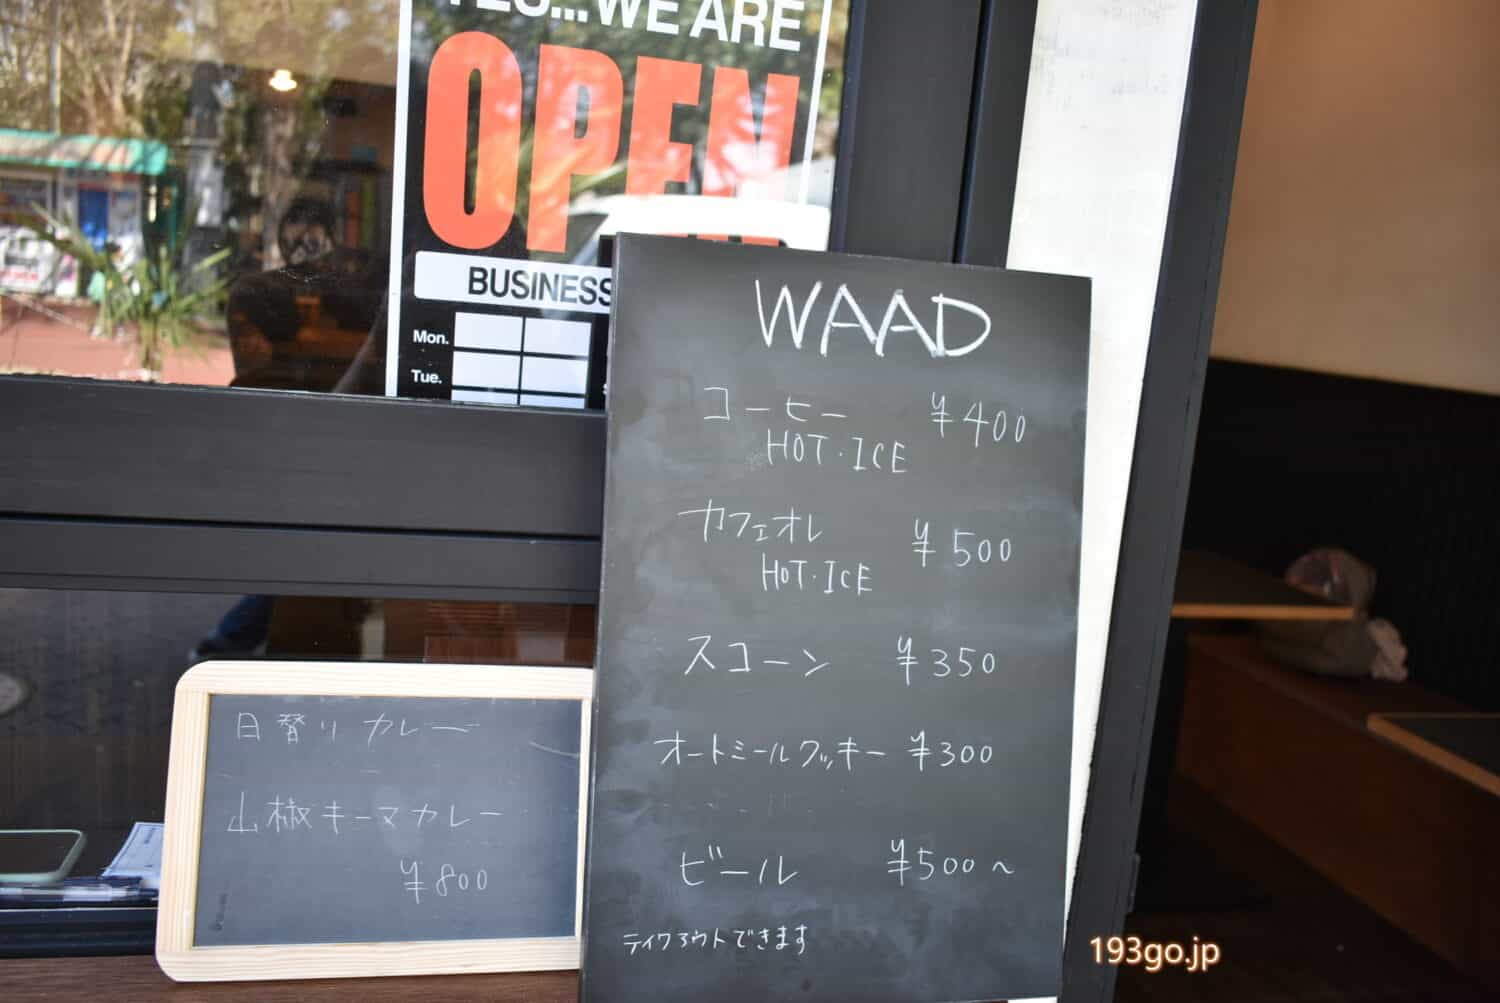 YES...WE ARE
OPEN
BUSINESS
Mon.
Tue.
WAAD
コーヒー ¥400
HOT・ICE
カフェオレ ¥500
HOT・ICE
スコーン ¥350
オートミールクッキー ¥300
ビール ¥500〜
テイクアウトできます
日替りカレー
山椒キーマカレー
¥800
193go.jp